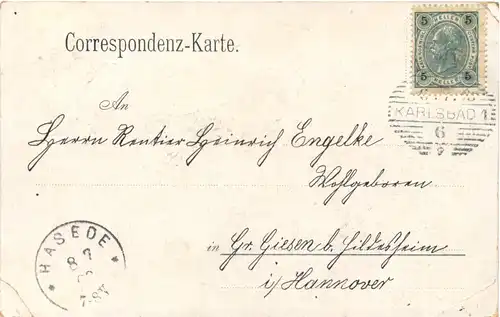 Correspondenz-Karte.
5 HELLER 5
5 HELLER 5
KARLSBAD 1
6
9
An
Herrn Rentier Heinrich Engelke
Wohlgeboren
in Gr. Giesen b. Hildesheim
i/Hannover
* HASEDE *
8 7
7-8V